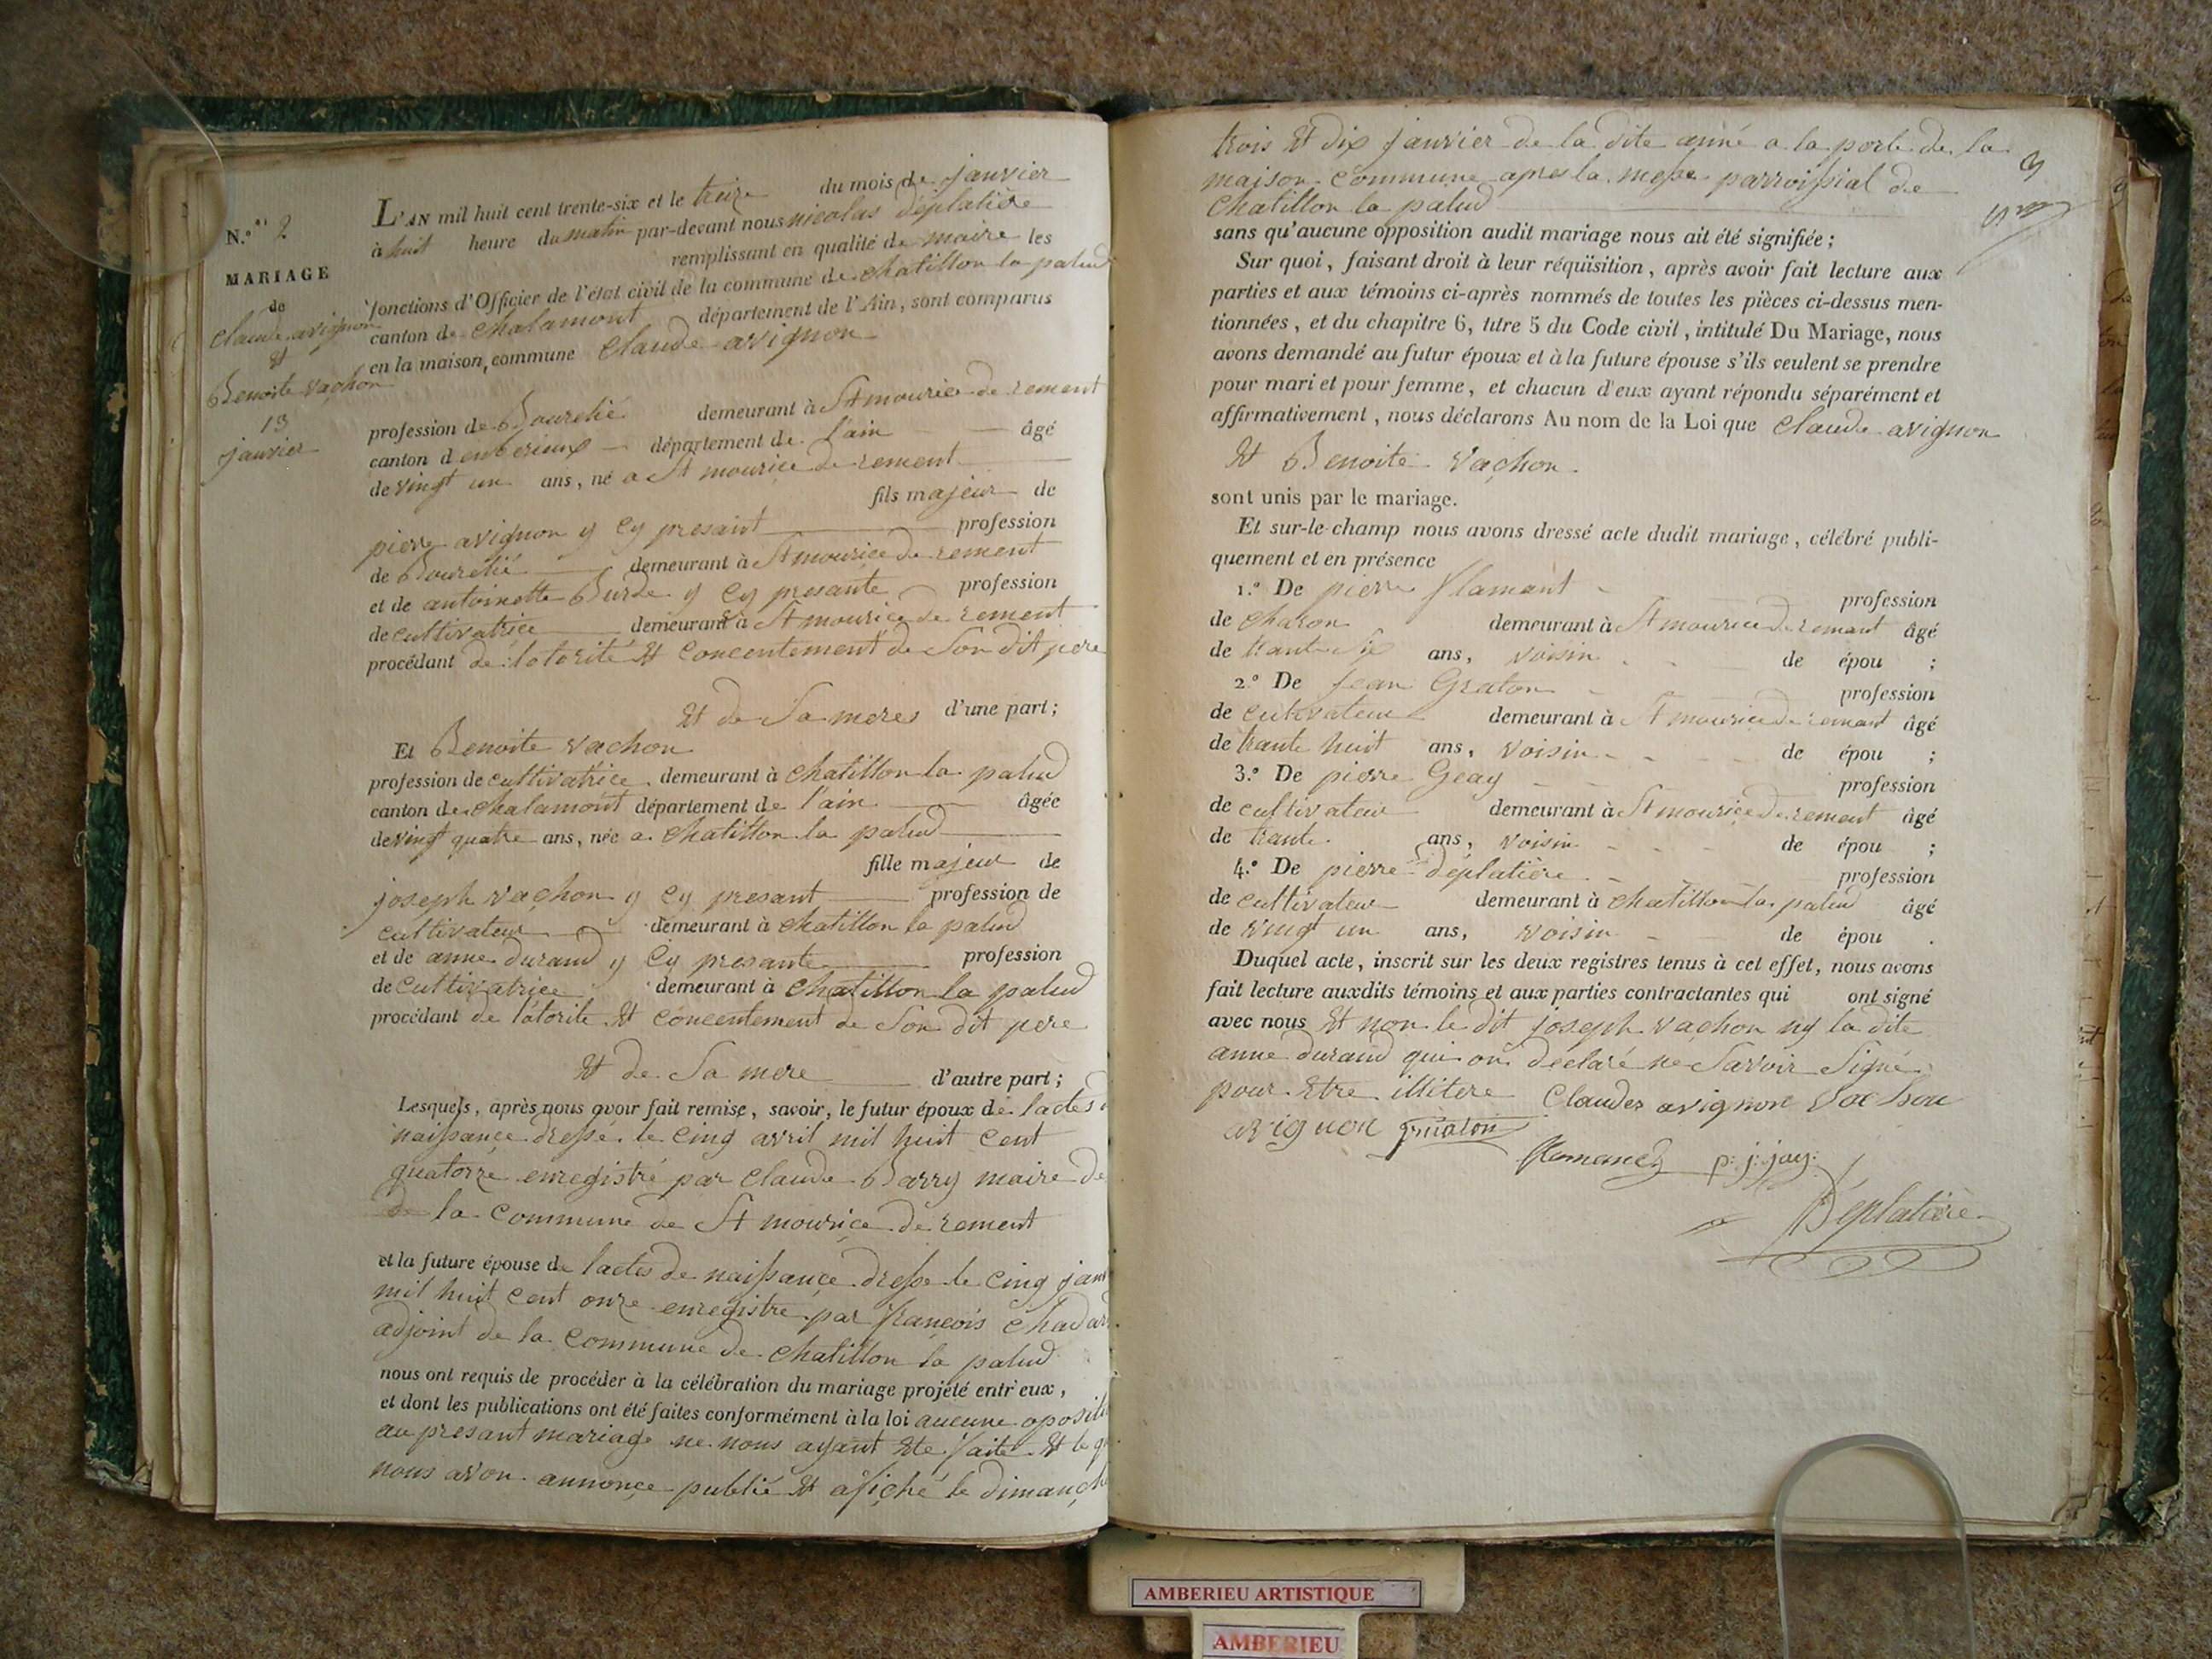 N.º 2
MARIAGE
de
Claude avignon
et
Benoite vachon
13
janvier
L'AN mil huit cent trente-six et le treize du mois de janvier
à huit heure du matin par-devant nous nicolas déplatière
remplissant en qualité de maire les
fonctions d'Officier de l'état civil de la commune de chatillon la palud
canton de chalamont département de l'Ain, sont comparus
en la maison commune Claude avignon
profession de Bourelié demeurant à St mourice de rement
canton d enberieux département de l'ain âgé
de vingt un ans, né a St mourice de rement
fils majeur de
pierre avignon y cy presant profession
de Bourelié demeurant à St mourice de rement
et de antoinette Burde y cy presante profession
de cultivatrice demeurant à St mourice de rement
procédant de lotorité et concentement de Son dit pere
et de Sa meres d'une part;
Et Benoite vachon
profession de cultivatrice demeurant à chatillon la palud
canton de chalamont département de l'ain âgée
de vingt quatre ans, née a chatillon la palud
fille majeur de
joseph vachon y cy presant profession de
cultivateur demeurant à chatillon la palud
et de anne durand y cy presante profession
de cultivatrice demeurant à chatillon la palud
procédant de l'atorite et concentement de Son dit pere
et de Sa mere d'autre part;
Lesquels, après nous avoir fait remise, savoir, le futur époux de lactes
naissance dressé le cinq avril mil huit cent
quatorze enregistré par Claude Barry maire de
de la commune de St mourice de rement
et la future épouse de lactes de naissance dresse le cinq janv
mil huit cent onze enregistre par françois chadar
adjoint de la commune de chatillon la palud
nous ont requis de procéder à la célébration du mariage projeté entr'eux,
et dont les publications ont été faites conformément à la loi aucune oposit
au presant mariage ne nous ayant ete faite et le q
nous avon annonçe publié et afiché le dimanche
trois et dix janvier de la dite anné a la porte de la
maison commune apres la messe parroissial de
Chatillon la palud
sans qu'aucune opposition audit mariage nous ait été signifiée;
Sur quoi, faisant droit à leur réquisition, après avoir fait lecture aux
parties et aux témoins ci-après nommés de toutes les pièces ci-dessus men-
tionnées, et du chapitre 6, titre 5 du Code civil, intitulé Du Mariage, nous
avons demandé au futur époux et à la future épouse s'ils veulent se prendre
pour mari et pour femme, et chacun d'eux ayant répondu séparément et
affirmativement, nous déclarons Au nom de la Loi que Claude avignon
et Benoite vachon
sont unis par le mariage.
Et sur-le-champ nous avons dressé acte dudit mariage, célébré publi-
quement et en présence
1.º De pierre flamant profession
de charon demeurant à St mourice de remant âgé
de trante six ans, voisin de épou ;
2.º De jean Graton profession
de cultivateur demeurant à St mourice de remant âgé
de trante huit ans, voisin de épou ;
3.º De pierre Geay profession
de cultivateur demeurant à St mourice de rement âgé
de trante ans, voisin de épou ;
4.º De pierre déplatière profession
de cultivateur demeurant à chatillon la palud âgé
de vingt un ans, voisin de épou .
Duquel acte, inscrit sur les deux registres tenus à cet effet, nous avons
fait lecture auxdits témoins et aux parties contractantes qui ont signé
avec nous et non le dit joseph vachon ny la dite
anne durand qui on declaré ne Savoir Signé
pour etre illitere Claudes avignon vachon
avignon
p: j: jay
Déplatière
AMBERIEU ARTISTIQUE
AMBERIEU